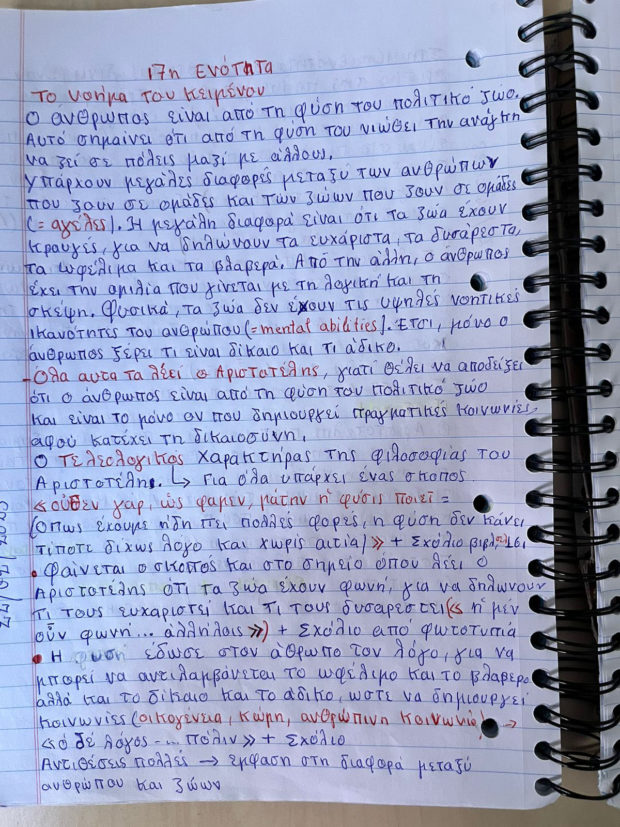 17η ΕΝΌΤΗΤΑ
Το νόημα του κειμένου
Ο άνθρωπος είναι από τη φύση του πολιτικό ζώο.
Αυτό σημαίνει ότι από τη φύση του νιώθει την ανάγκη
να ζεί σε πόλεις μαζί με άλλους.
Υπάρχουν μεγάλες διαφορές μεταξύ των ανθρώπων
που ζουν σε ομάδες και των ζώων που ζουν σε ομάδες
(= αγέλες). Η μεγάλη διαφορά είναι ότι τα ζώα έχουν
κραυγές, για να δηλώνουν τα ευχάριστα, τα δυσάρεστα,
τα ωφέλιμα και τα βλαβερά. Από την άλλη, ο άνθρωπος
έχει την ομιλία που γίνεται με τη λογική και τη
σκέψη. Φυσικά, τα ζώα δεν έχουν τις υψηλές νοητικές
ικανότητες του ανθρώπου (= mental abilities). Έτσι, μόνο ο
άνθρωπος ξέρει τι είναι δίκαιο και τι άδικο.
- Όλα αυτα τα λέει ο Αριστοτέλης, γιατί θέλει να αποδείξει
ότι ο άνθρωπος είναι από τη φύση του πολιτικό ζώο
και είναι το μόνο ον που δημιουργεί πραγματικές κοινωνίες,
αφού κατέχει τη δικαιοσύνη.
Ο Τελεολογικός χαρακτήρας της φιλοσοφίας του
Αριστοτέλη. ↳ Για όλα υπάρχει ένας σκοπός.
«οὐθεν γάρ, ὡς φαμεν, μάτην ἡ φύσις ποιεῖ =
(όπως έχουμε ήδη πει πολλές φορές, η φύση δεν κάνει
τίποτε δίχως λόγο και χωρίς αιτία)» + Σχόλιο βιβλ. 161
• Φαίνεται ο σκοπός και στο σημείο όπου λέει ο
Αριστοτέλης ότι τα ζώα έχουν φωνή, για να δηλώνουν
τι τους ευχαριστεί και τι τους δυσαρεστεί (« ἡ μέν
οὖν φωνή... ἀλλήλοις ») + Σχόλιο από φωτοτυπία
• Η φύση έδωσε στον άθρωπο τον λόγο, για να
μπορεί να αντιλαμβάνεται το ωφέλιμο και το βλαβερό
αλλά και το δίκαιο και το άδικο, ώστε να δημιουργεί
κοινωνίες (οικογένεια, κώμη, ανθρώπινη κοινωνία) →
«ὁ δέ λόγος -... πόλιν» + Σχόλιο
Αντιθέσεις πολλές → έμφαση στη διαφορά μεταξύ
ανθρώπου και ζώων